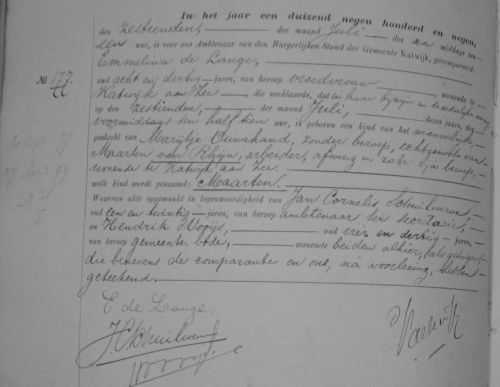 In het jaar een duizend negen honderd en negen,
den zestienden, der maand Juli des na middags ten
elf ure, is voor ons Ambtenaar van den Burgerlijken Stand der Gemeente Katwijk, gecompareerd
Emmelina de Lange,
No 177
oud acht en dertig jaren, van beroep vroedvrouw wonende te
Katwijk aan Zee die verklaarde, dat in haar bijzijn
op den zestienden, der maand Juli, dezes jaars, des
voormiddags ten half tien ure, is geboren een kind van het mannelijk
geslacht van Marijtje Ouwehand, zonder beroep, echtgenoote van
Maarten van Rhijn, arbeider, afwezig in zake zijn beroep,
wonende te Katwijk aan Zee.
welk kind wordt genaamd: Maarten.
Waarvan akte opgemaakt in tegenwoordigheid van Jan Cornelis
oud een en twintig jaren, van beroep ambtenaar ter secretarie,
en Hendrik Wooijs, oud vier en dertig jaren,
van beroep gemeente bode, wonende beiden alhier, als getuigen
die benevens de comparante en ons, na voorlezing, hebben
geteekend.
E de Lange.